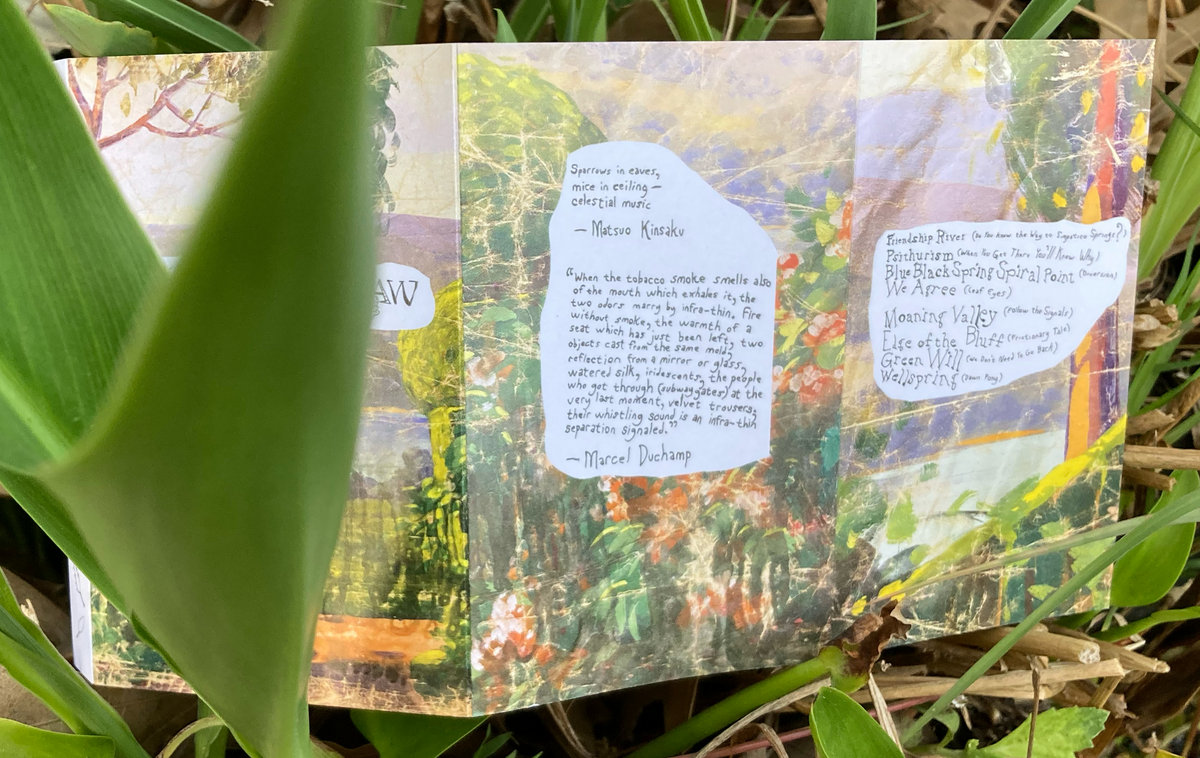 AW
Sparrows in eaves,
mice in ceiling –
celestial music
– Matsuo Kinsaku
"When the tobacco smoke smells also
of the mouth which exhales it, the
two odors marry by infra-thin. Fire
without smoke, the warmth of a
seat which has just been left, two
objects cast from the same mold,
reflection from a mirror or glass,
watered silk, iridescents, the people
who got through (subway gates) at the
very last moment, velvet trousers,
their whistling sound is an infra-thin
separation signaled."
– Marcel Duchamp
Friendship River (Do You Know the Way to Signation Springs?)
Psithurism (When You Get There You'll Know Why)
Blue Black Spring Spiral Point (Diversion)
We Agree (Leaf Eyes)
Moaning Valley (Follow the Signals)
Edge of the Bluff (Frictionary Tale)
Green Will (We Don't Need To Go Back)
Wellspring (Dawn Pony)